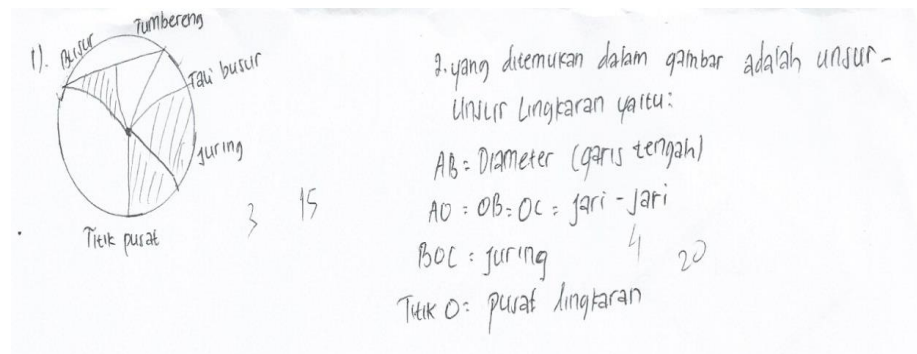 1). Busur
Tumbereng
Tali busur
Juring
Titik pusat
3 15
2. yang ditemukan dalam gambar adalah unsur-
unsur lingkaran yaitu:
AB = Diameter (garis tengah)
AO = OB = OC = jari-jari
BOC = Juring
4 20
Titik O = pusat lingkaran